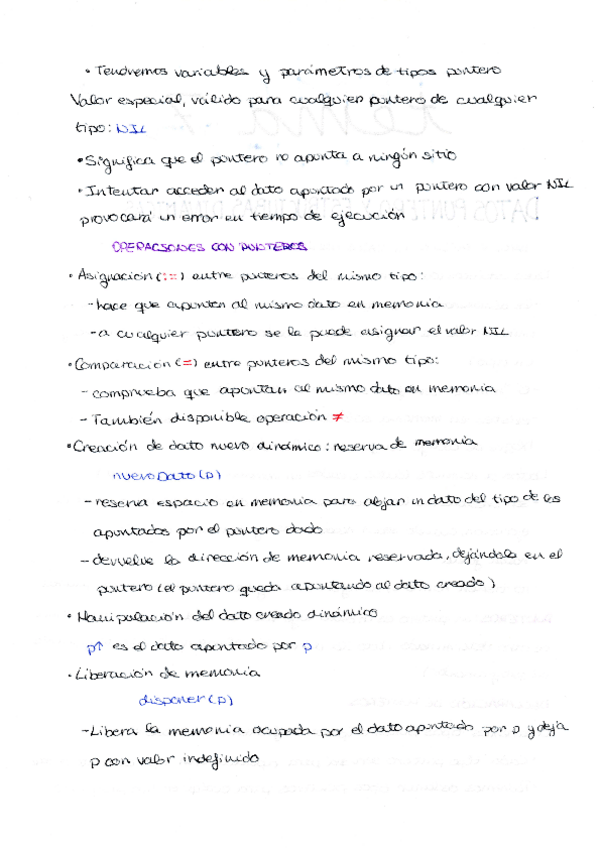 • Tendremos variables y parámetros de tipos puntero
Valor especial, válido para cualquier puntero de cualquier
tipo: NIL
• Significa que el puntero no apunta a ningún sitio
• Intentar acceder al dato apuntado por un puntero con valor NIL
provocará un error en tiempo de ejecución
OPERACIONES CON PUNTEROS
• Asignación (:=) entre punteros del mismo tipo:
- hace que apunten al mismo dato en memoria
- a cualquier puntero se le puede asignar el valor NIL
• Comparación (=) entre punteros del mismo tipo:
- comprueba que apuntan al mismo dato en memoria
- También disponible operación ≠
• Creación de dato nuevo dinámico: reserva de memoria
nuevoDato(p)
- reserva espacio en memoria para alojar un dato del tipo de los
apuntados por el puntero dado
- devuelve la dirección de memoria reservada, dejándola en el
puntero (el puntero queda apuntando al dato creado)
• Manipulación del dato creado dinámico
p↑ es el dato apuntado por p
• Liberación de memoria
disponer(p)
- Libera la memoria ocupada por el dato apuntado por p y deja
p con valor indefinido